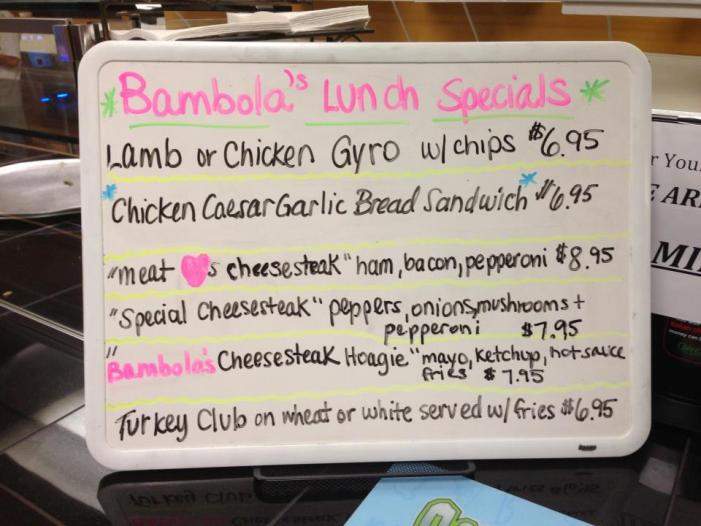 Bambola's Lunch Specials
Lamb or Chicken Gyro w/ chips $6.95
Chicken Caesar Garlic Bread Sandwich $6.95
"meat ♥s cheesesteak" ham, bacon, pepperoni $8.95
"Special Cheesesteak" peppers, onions, mushrooms +
pepperoni $7.95
"Bambola's Cheesesteak Hoagie" mayo, ketchup, hot sauce
fries $7.95
Turkey Club on wheat or white served w/ fries $6.95
r You
E AR
MI